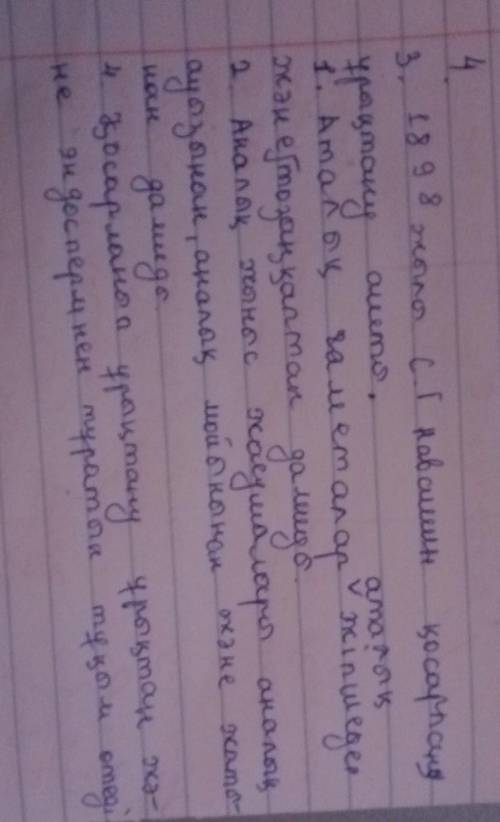 4
3. 1898 жылы С.Г Навашин қосарлана
ұрықтану ашты.
1. Аталық гаметалар аталық жіпшеден
және тозаңқалтан дамиды.
2 Аналық жыныс жасушалары аналық
ауызынан, аналық мойынынан және жаты-
нан дамиды.
4 Қосарланып ұрықтану ұрықтан жә-
не эндоспермнен тұратын тұқым өтеді